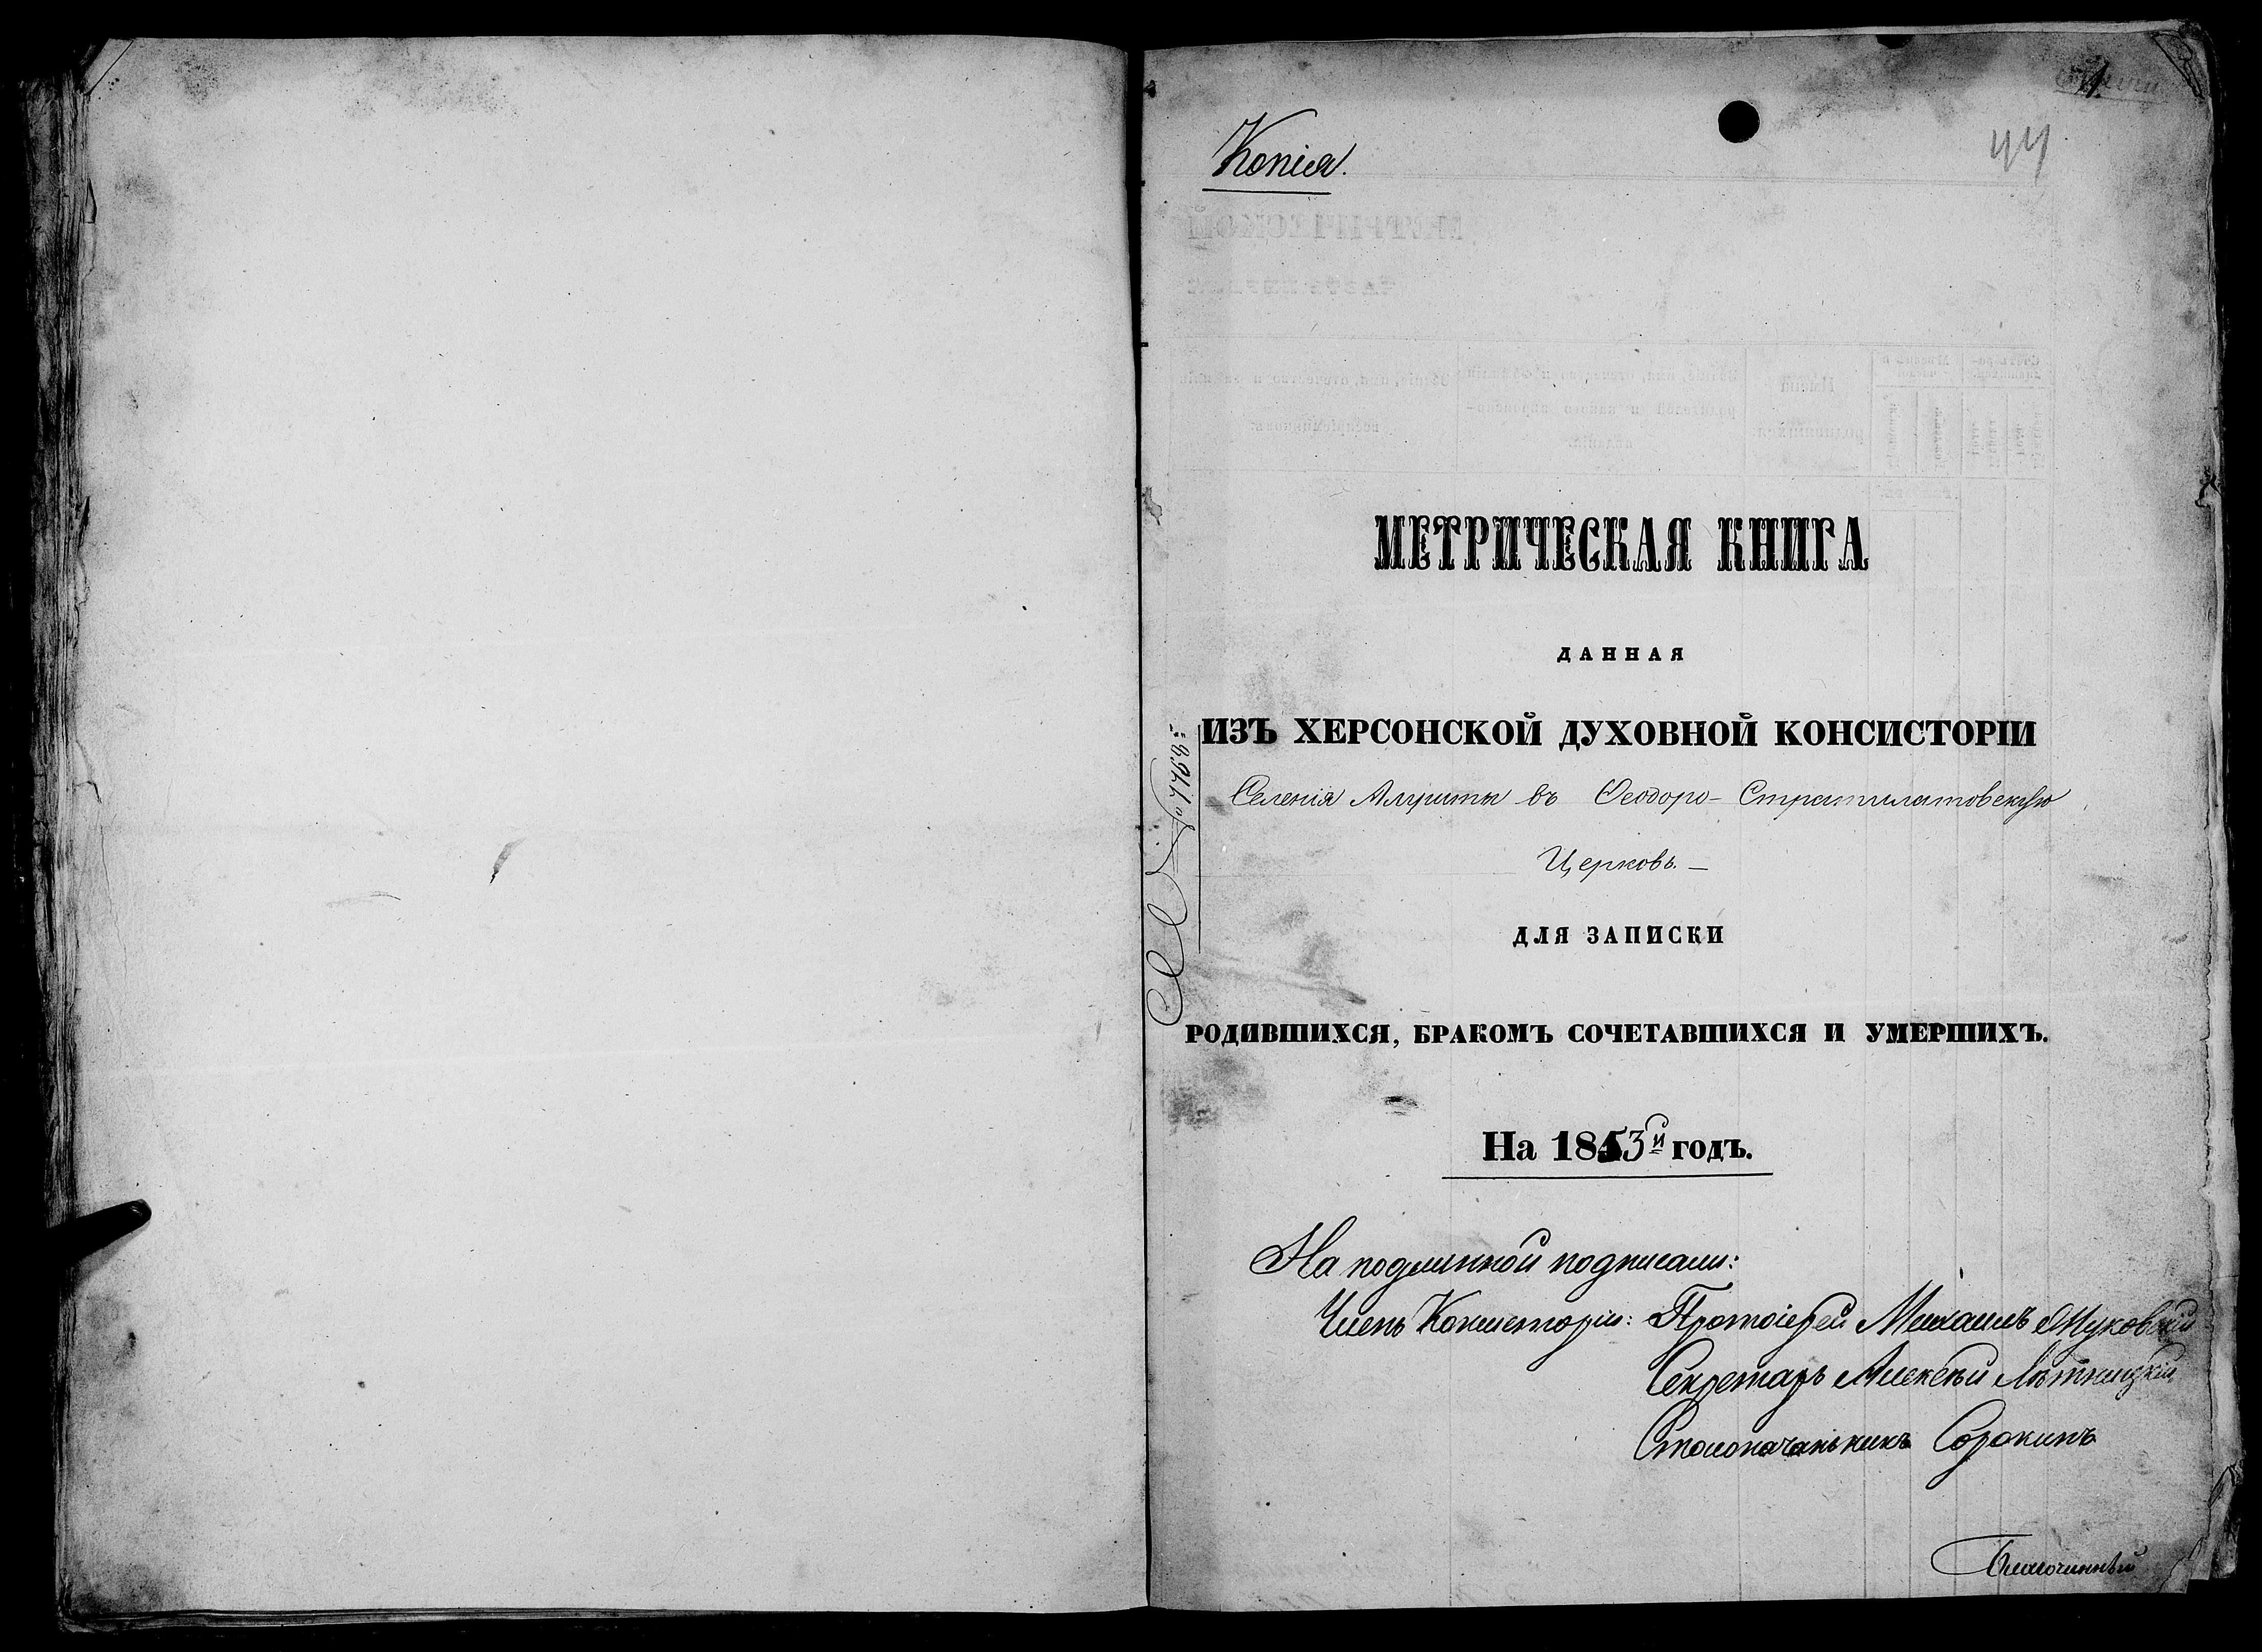 Копія.
44
МЕТРИЧЕСКАЯ КНИГА
ДАННАЯ
ИЗЪ ХЕРСОНСКОЙ ДУХОВНОЙ КОНСИСТОРІИ
Селенія въ Ѳеодоро-Стратилатовскую
Церковь.—
ДЛЯ ЗАПИСКИ
РОДИВШИХСЯ, БРАКОМЪ СОЧЕТАВШИХСЯ И УМЕРШИХЪ.
На 1853й годъ.
На подлинной подписали:
Членъ Консисторіи: Протоіерей Михаилъ Жуковскій
Секретарь Алексѣй Лѣтницкій
Столоначальникъ Сорокинъ
Благочинный